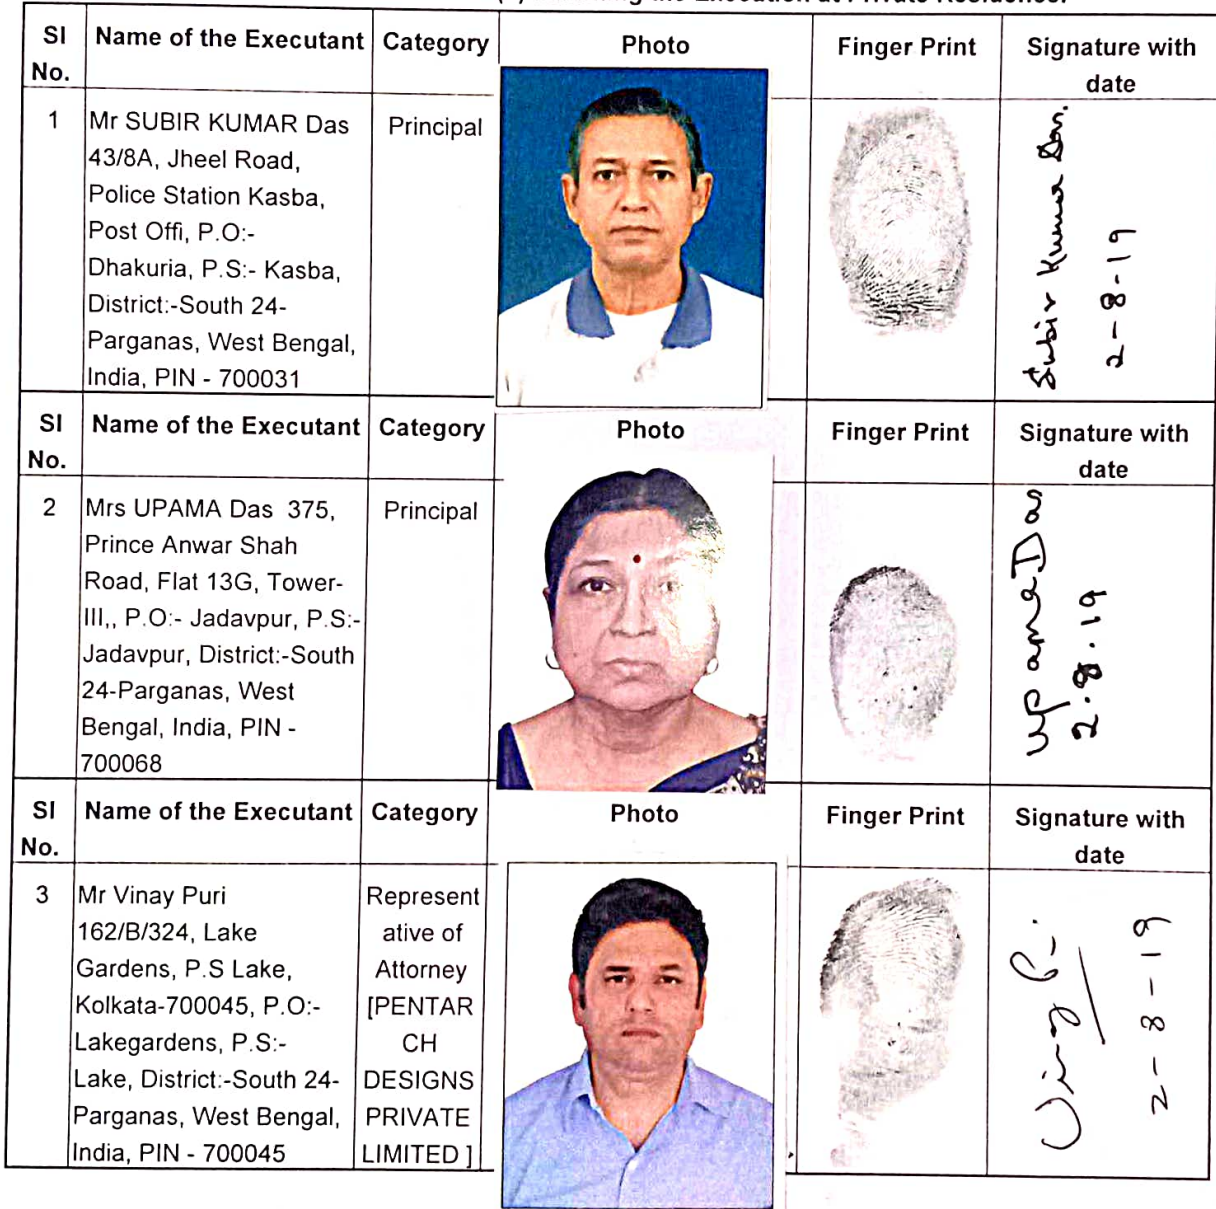 the Execution at Private Residence.
Sl No. Name of the Executant Category Photo Finger Print Signature with date
1 Mr SUBIR KUMAR Das Principal
43/8A, Jheel Road,
Police Station Kasba,
Post Offi, P.O:-
Dhakuria, P.S:- Kasba,
District:-South 24-
Parganas, West Bengal,
India, PIN - 700031
Subir Kumar Das.
2-8-19
Sl No. Name of the Executant Category Photo Finger Print Signature with date
2 Mrs UPAMA Das 375, Principal
Prince Anwar Shah
Road, Flat 13G, Tower-
III,, P.O:- Jadavpur, P.S:-
Jadavpur, District:-South
24-Parganas, West
Bengal, India, PIN -
700068
Upama Das
2.8.19
Sl No. Name of the Executant Category Photo Finger Print Signature with date
3 Mr Vinay Puri
162/B/324, Lake
Gardens, P.S Lake,
Kolkata-700045, P.O:-
Lakegardens, P.S:-
Lake, District:-South 24-
Parganas, West Bengal,
India, PIN - 700045
Represent
ative of
Attorney
[PENTAR
CH
DESIGNS
PRIVATE
LIMITED ]
Vinay P-.
2-8-19